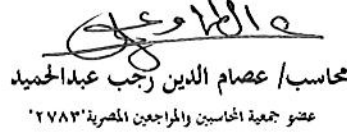 محاسب/ عصام الدين رجب عبدالحميد
عضو جمعية المحاسبين والمراجعين المصرية "٢٧٨٣"